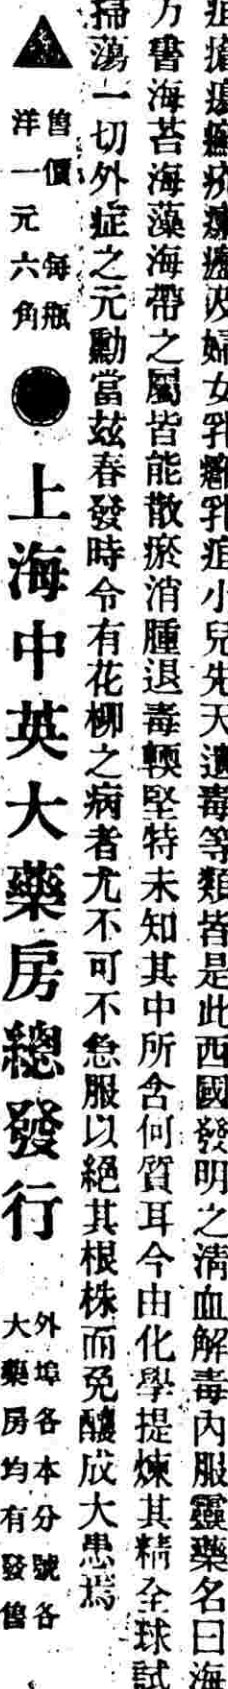 疽瘡瘍癰疥瘰癧及婦女乳癰乳疽小兒先天遺毒等類皆是此西國發明之清血解毒內服靈藥名曰海
方書海苔海藻海帶之屬皆能散瘀消腫退毒輭堅特未知其中所含何質耳今由化學提煉其精全球試
掃蕩一切外症之元勳當茲春發時令有花柳之病者尤不可不急服以絕其根株而免釀成大患焉
售價 每瓶
洋一元六角
上海中英大藥房總發行
外埠各本分號各
大藥房均有發售